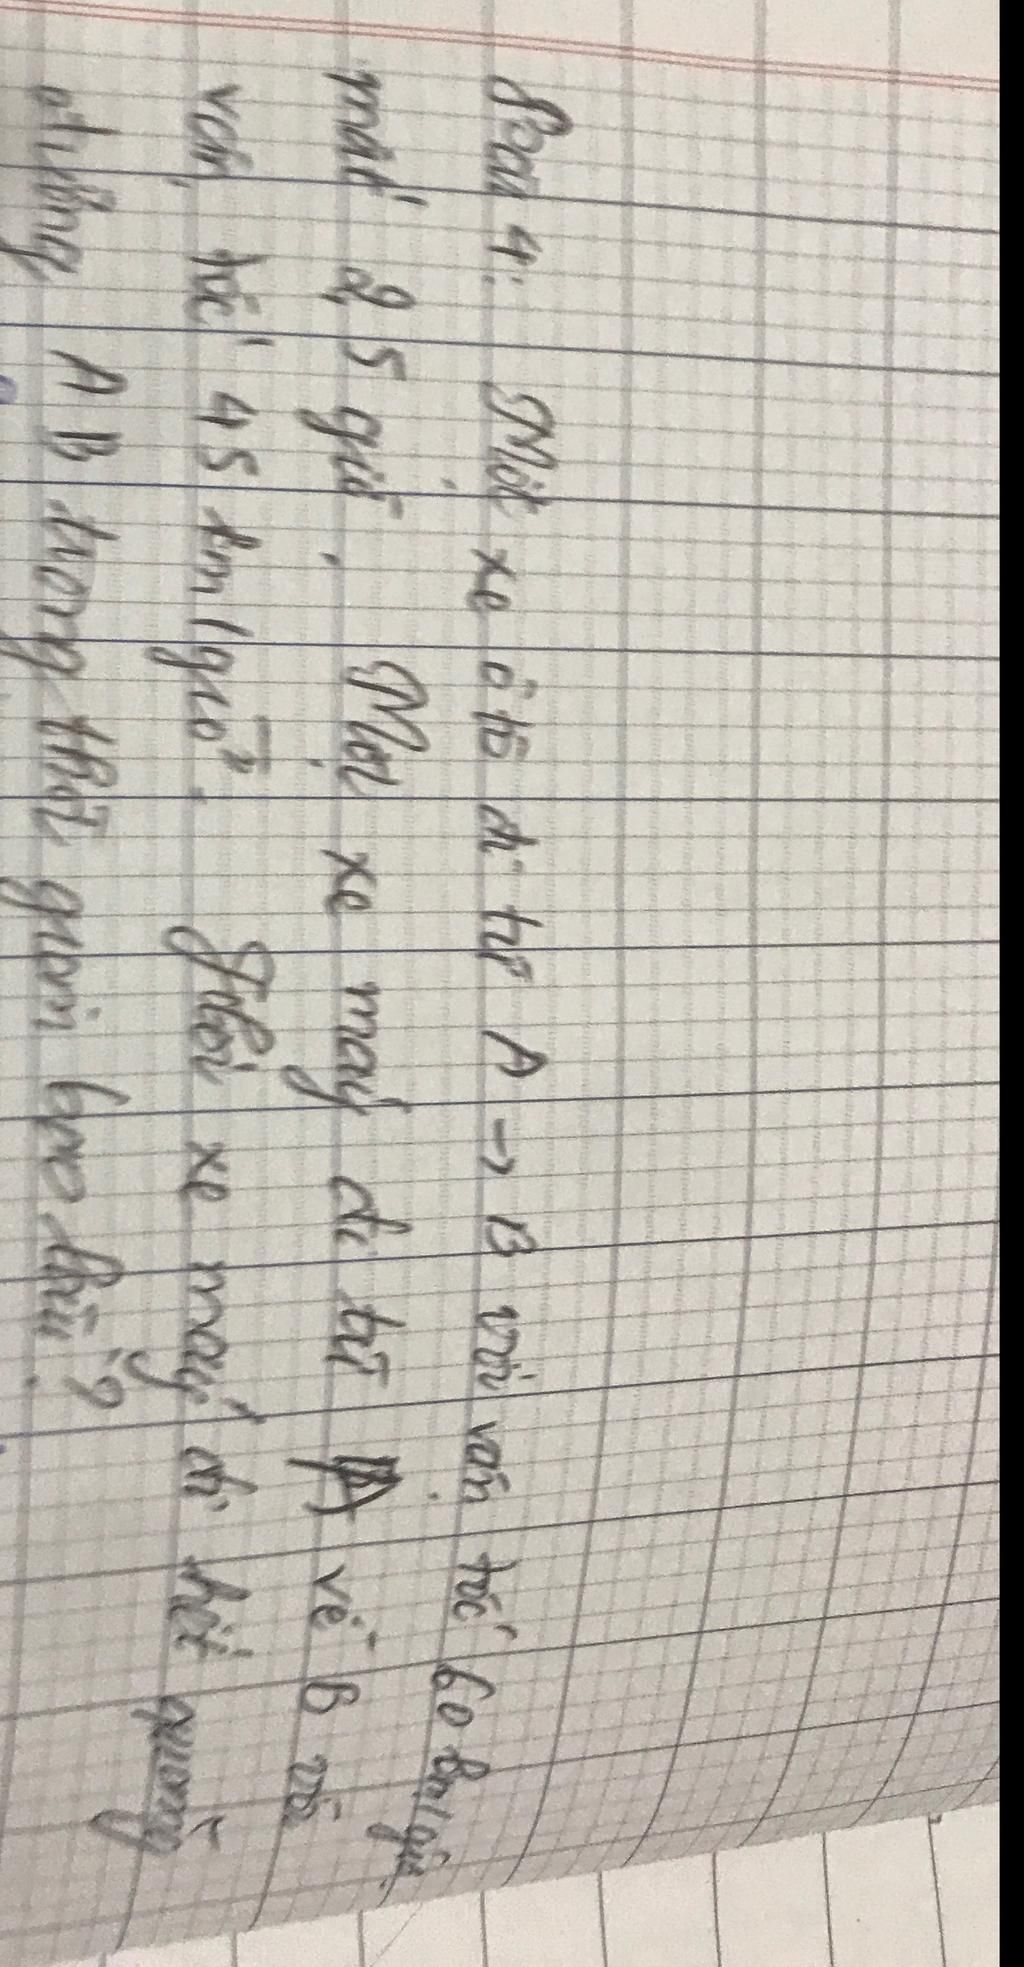 Bài 4: Một xe ô tô đi từ A → B với vận tốc 60 km/giờ
mất 2,5 giờ. Một xe máy đi từ A về B với
vận tốc 45 km/giờ. Thời xe máy đi hết quãng
đường AB trong thời gian bao lâu?